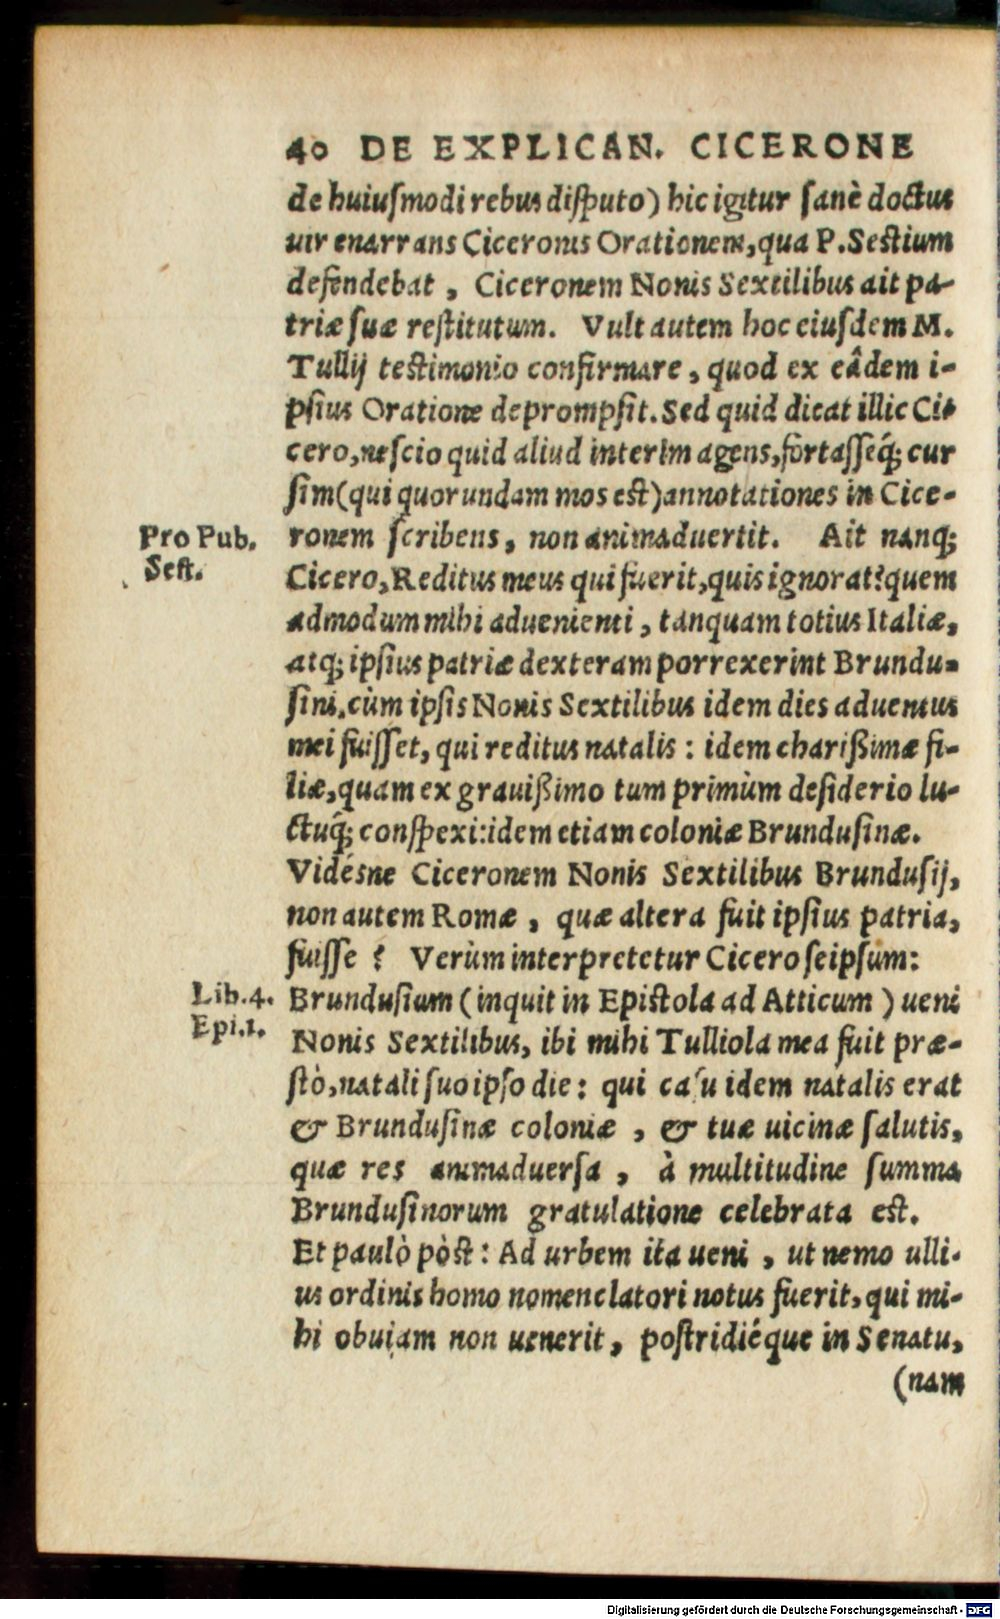 40 DE EXPLICAN. CICERONE
de huiuſmodi rebus diſputo) hic igitur ſanè doctus
uir enarrans Ciceronis Orationem, qua P. Sestium
defendebat, Ciceronem Nonis Sextilibus ait pa-
triæ ſuæ reſtitutum. Vult autem hoc eiuſdem M.
Tullij testimonio confirmare, quod ex eâdem i-
pſius Oratione deprompſit. Sed quid dicat illic Ci-
cero, neſcio quid aliud interim agens, fortaſſéq; cur
ſim (qui quorundam mos est) annotationes in Cice-
Pro Pub.
Seſt.
ronem ſcribens, non animaduertit. Ait nanq;
Cicero, Reditus meus qui fuerit, quis ignorat? quem
admodum mihi aduenienti, tanquam totius Italiæ,
atq; ipſius patriæ dexteram porrexerint Brundu-
ſini, cùm ipſis Nonis Sextilibus idem dies aduentus
mei fuiſſet, qui reditus natalis: idem charißimæ fi-
liæ, quam ex grauißimo tum primùm deſiderio lu-
ctuq́; conſpexi: idem etiam coloniæ Brunduſinæ.
Vidésne Ciceronem Nonis Sextilibus Brunduſij,
non autem Romæ, quæ altera fuit ipſius patria,
fuiſſe? Verùm interpretetur Cicero ſeipſum:
Lib. 4.
Epi. 1.
Brunduſium (inquit in Epistola ad Atticum) ueni
Nonis Sextilibus, ibi mihi Tulliola mea fuit præ-
ſtò, natali ſuo ipſo die: qui caſu idem natalis erat
& Brunduſinæ coloniæ, & tuæ uicinæ ſalutis,
quæ res animaduerſa, à multitudine ſumma
Brunduſinorum gratulatione celebrata est.
Et paulò pòst: Ad urbem ita ueni, ut nemo ulli-
us ordinis homo nomenclatori notus fuerit, qui mi-
hi obuiam non uenerit, poſtridiéque in Senatu,
(nam
Digitalisierung gefördert durch die Deutsche Forschungsgemeinschaft - DFG